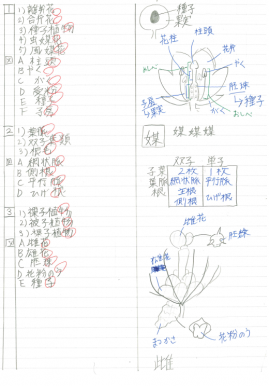 1
1) 離弁花
2) 合弁花
3) 種子植物
4) 虫媒花
5) 風媒花
図 A 柱頭
B やく
C がく
D 愛
E 種子
F 子房
種子
果実
花柱
柱頭
花弁
やく
おしべ
めしべ
がく
胚珠
→種子
子房
→果実
2
1) 葉脈
2) 双子葉類
3) 根毛
図 A 網状脈
B 側根
C 平行脈
D ひげ根
媒 媒媒媒
双子 単子
子葉 2枚 1枚
葉脈 網状脈 平行脈
根 主根 側根 ひげ根
3
1) 裸子植物
2) 被子植物
3) 種子植物
図 A 雌花
B 雄花
C 胚珠
D 花粉のう
E 種子
雌花
胚珠
雄花
まつかさ
花粉のう
雌